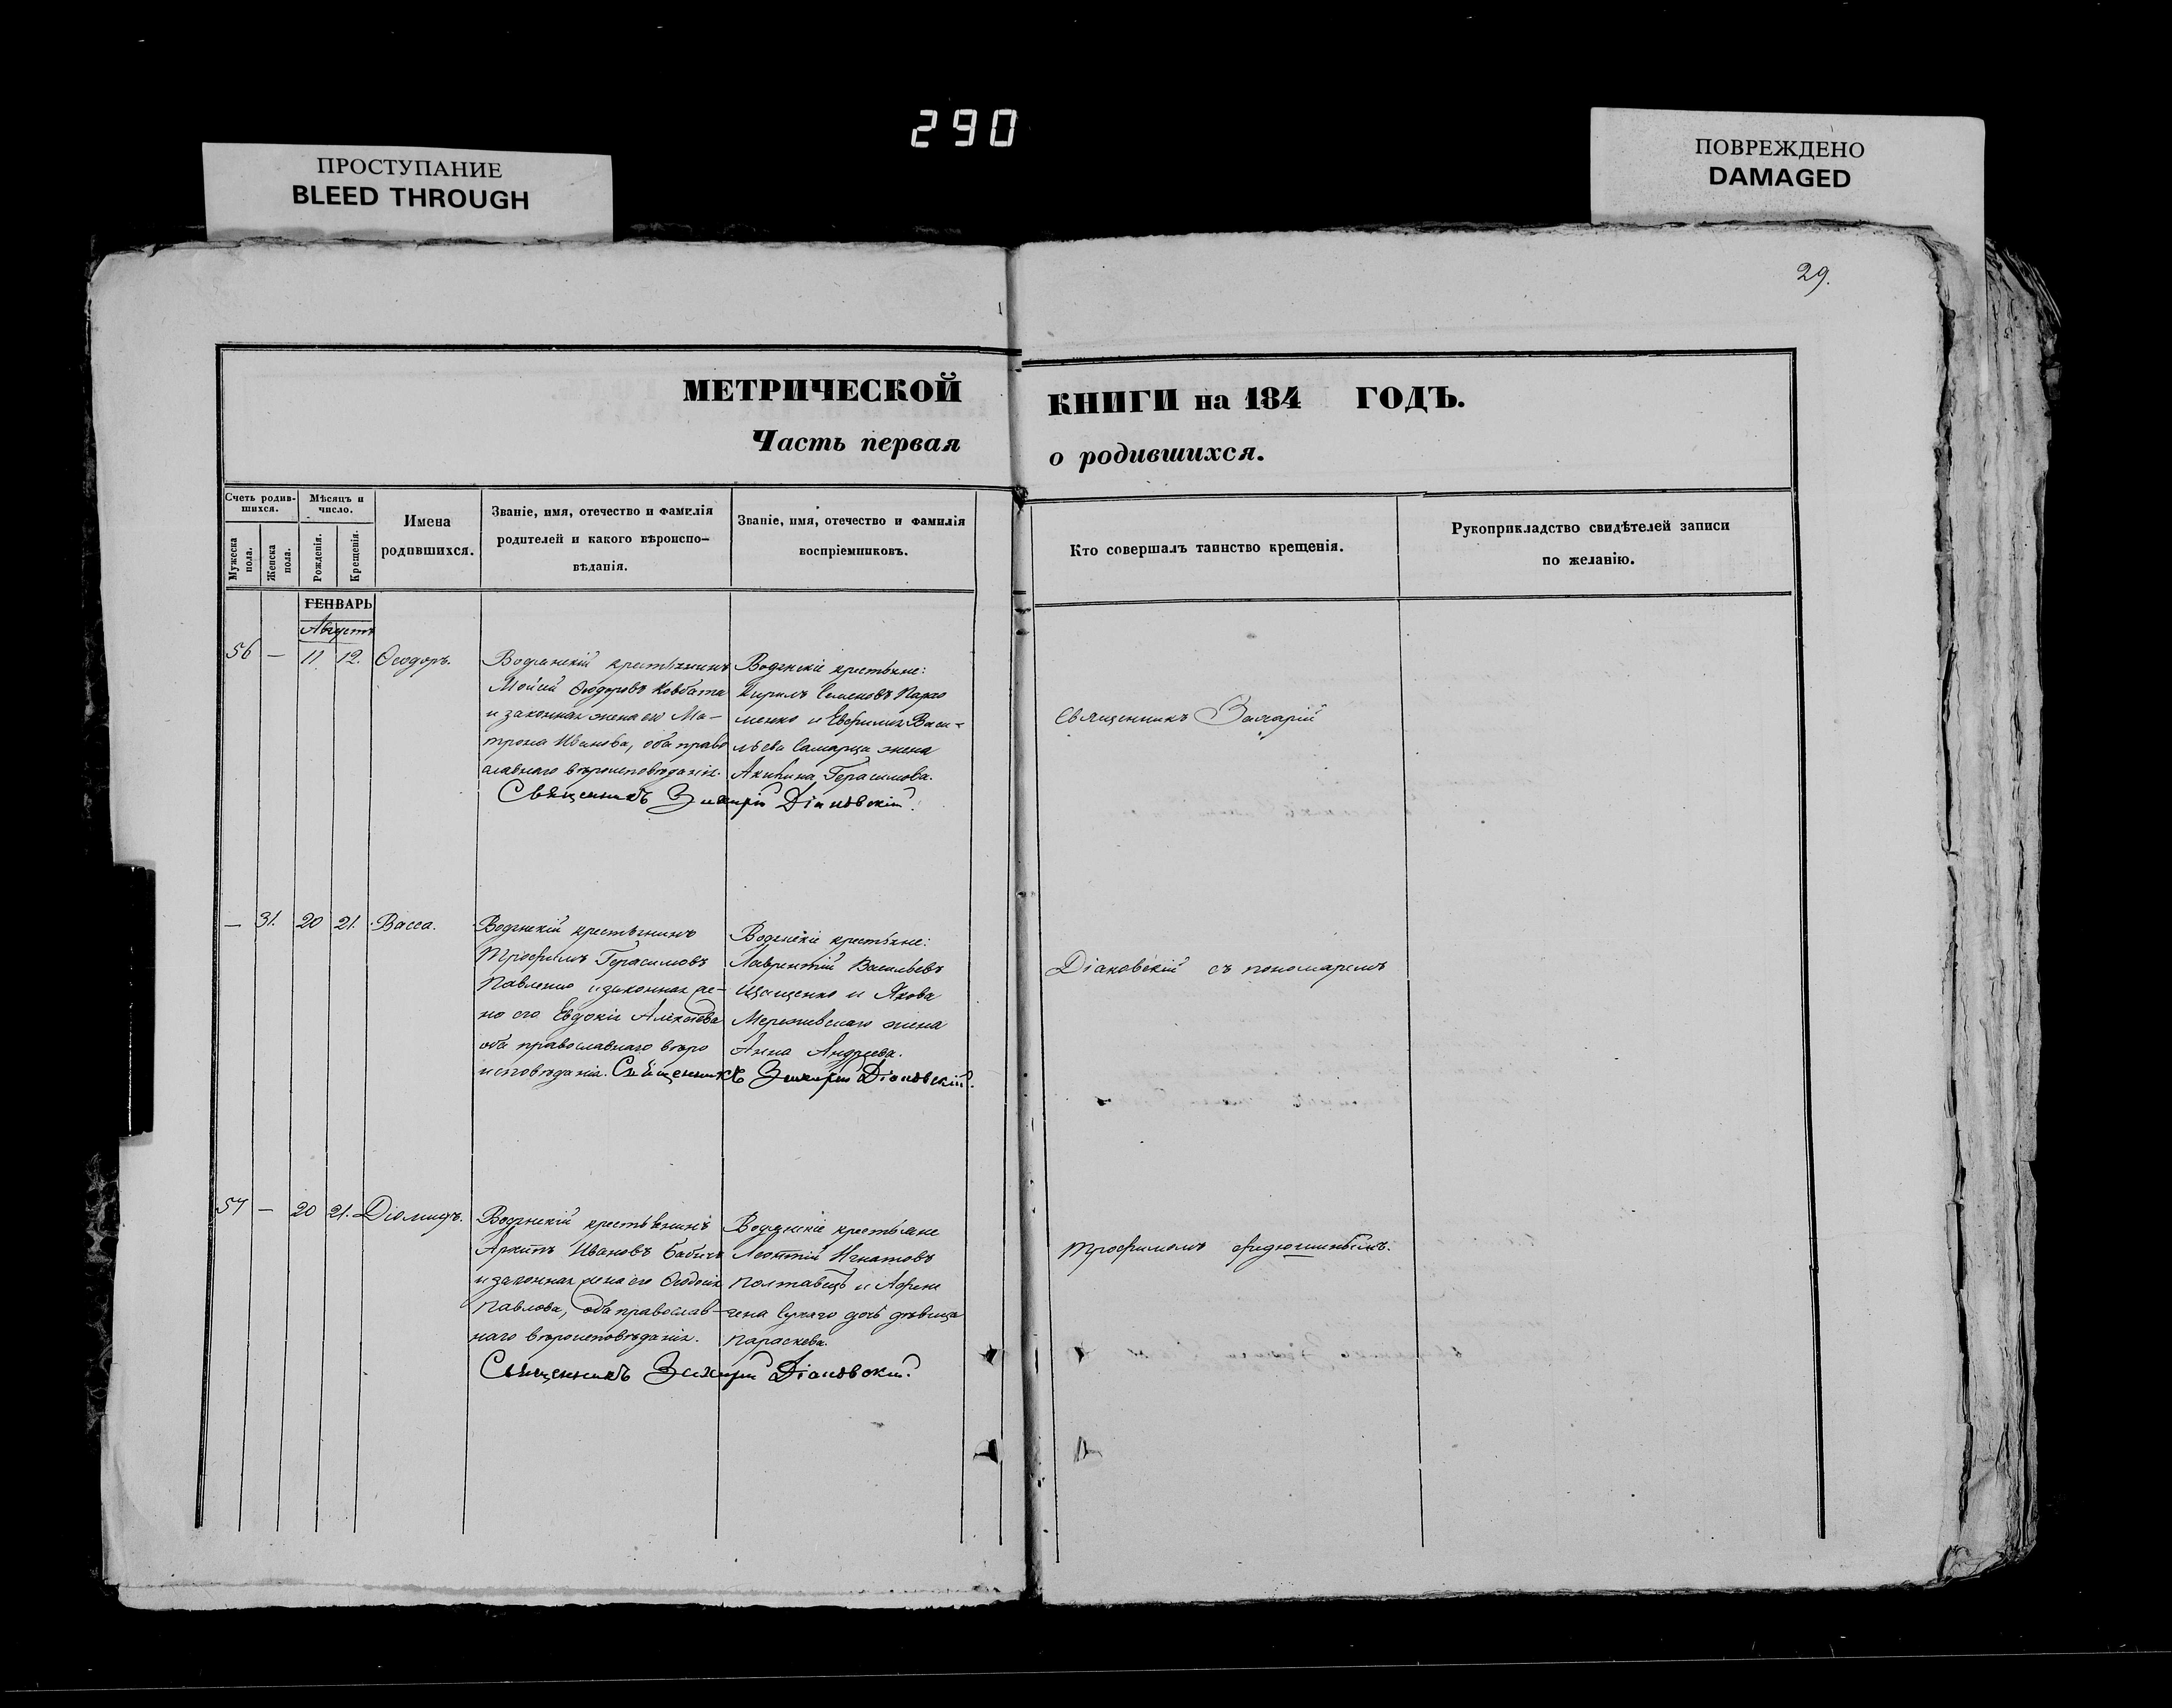 290
ПРОСТУПАНИЕ
BLEED THROUGH
ПОВРЕЖДЕНО
DAMAGED
29.
МЕТРИЧЕСКОЙ
КНИГИ на 184 ГОДЪ.
Часть первая
о родившихся.
Счетъ родив-
шихся.
Мужеска
пола.
Женска
пола.
Мѣсяцъ и
число.
Рожденія.
Крещенія.
Имена
родившихся.
Званіе, имя, отечество и фамилія
родителей и какого вѣроиспо-
вѣданія.
Званіе, имя, отечество и фамилія
воспріемниковъ.
Кто совершалъ таинство крещенія.
Рукоприкладство свидѣтелей записи
по желанію.
ГЕНВАРЬ
Августъ
56 — 11. 12. Ѳеодоръ.
Водянскій крестьянинъ
Мойсей Ѳеодоровъ Ковбата
и законная жена его Ма-
трона Иванова, оба право
славнаго вѣроисповѣданія.
Водянскіе крестьяне:
Кирилъ Семеновъ Пархо
менко и Евфимія Васи-
льева Самарца жена
Акилина Герасимова.
Священникъ Захарій Діаковскій.
Священникъ Захарій
— 31. 20 21. Васса.
Водянскій крестьянинъ
Трофимъ Герасимовъ
Павленко и законная же-
на его Евдокія Алексѣева
оба православнаго вѣро
исповѣданія.
Водянскіе крестьяне:
Лаврентій Васильевъ
Ищенко и Якова
жена
Анна Андреева.
Священникъ Захарій Діаковскій.
Діаковскій съ пономаремъ
57 — 20 21. Діомидъ.
Водянскій крестьянинъ
Архипъ Ивановъ Бабичъ
и законная жена его Ѳеодосія
Павлова, оба православ-
наго вѣроисповѣданія.
Водянскіе крестьяне
Леонтій Игнатовъ
Полтавецъ и
дочь дѣвица
Параскева.
Священникъ Захарій Діаковскій.
Трофимомъ Федюшинымъ.